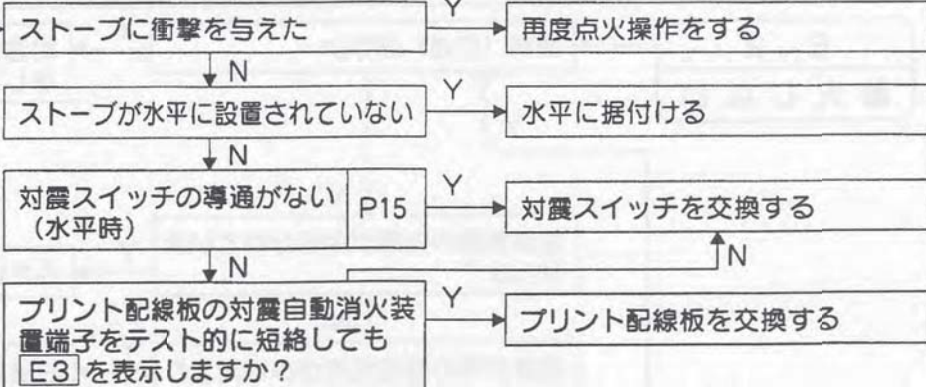 ストーブに衝撃を与えた
Y
再度点火操作をする
N
ストーブが水平に設置されていない
Y
水平に据付ける
N
対震スイッチの導通がない
（水平時）
P15
Y
対震スイッチを交換する
N
N
プリント配線板の対震自動消火装
置端子をテスト的に短絡しても
E3 を表示しますか？
Y
プリント配線板を交換する